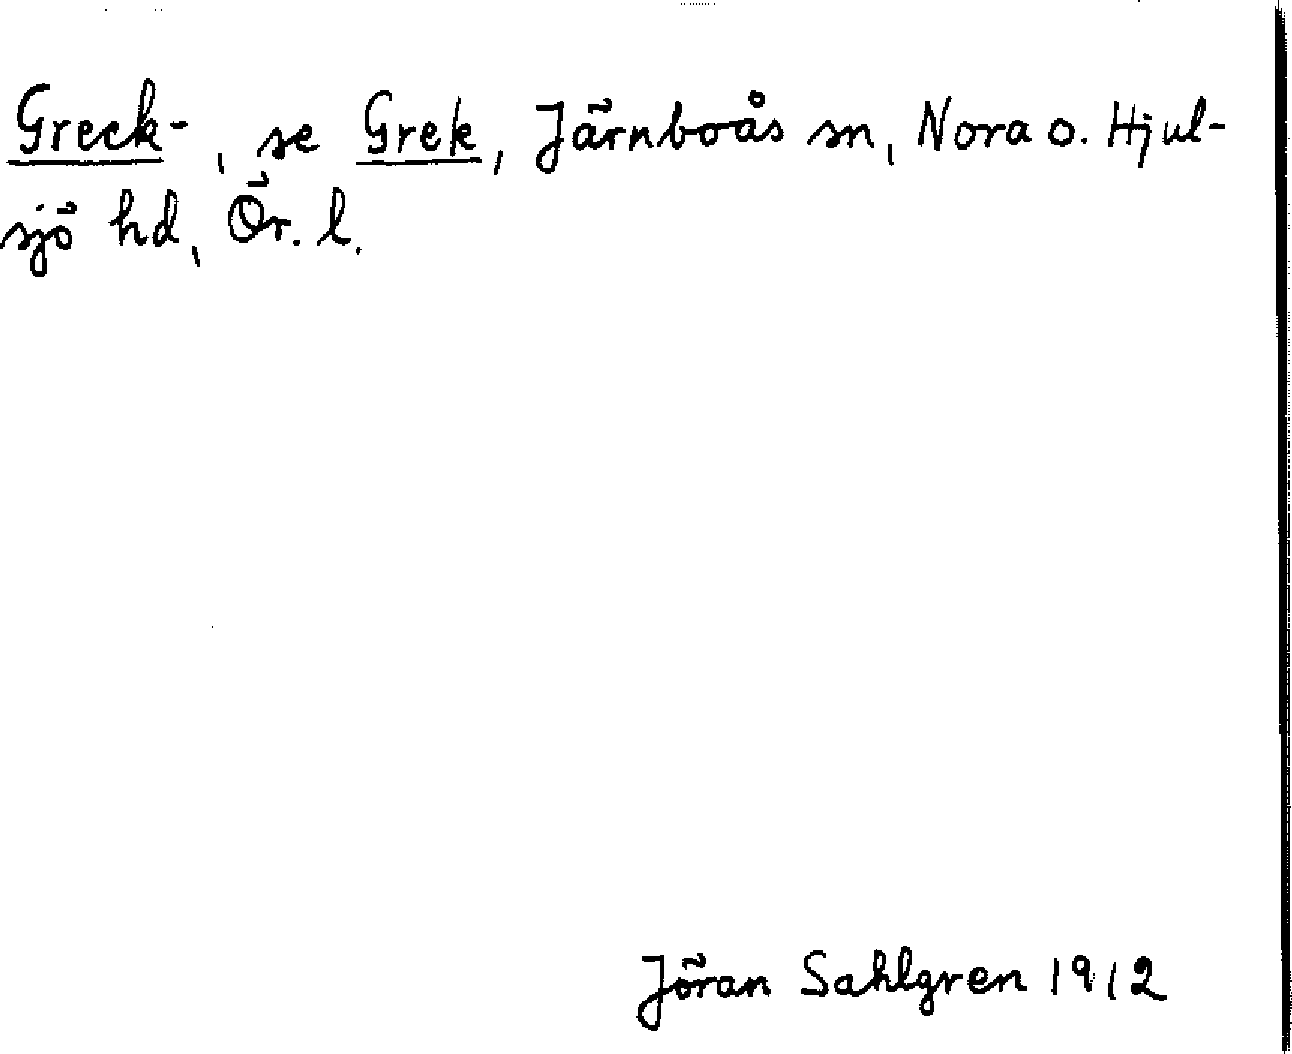 Greck-, se Grek, Järnboås sn, Nora o. Hjul-
sjö hd, Ör. l.
Jöran Sahlgren 1912